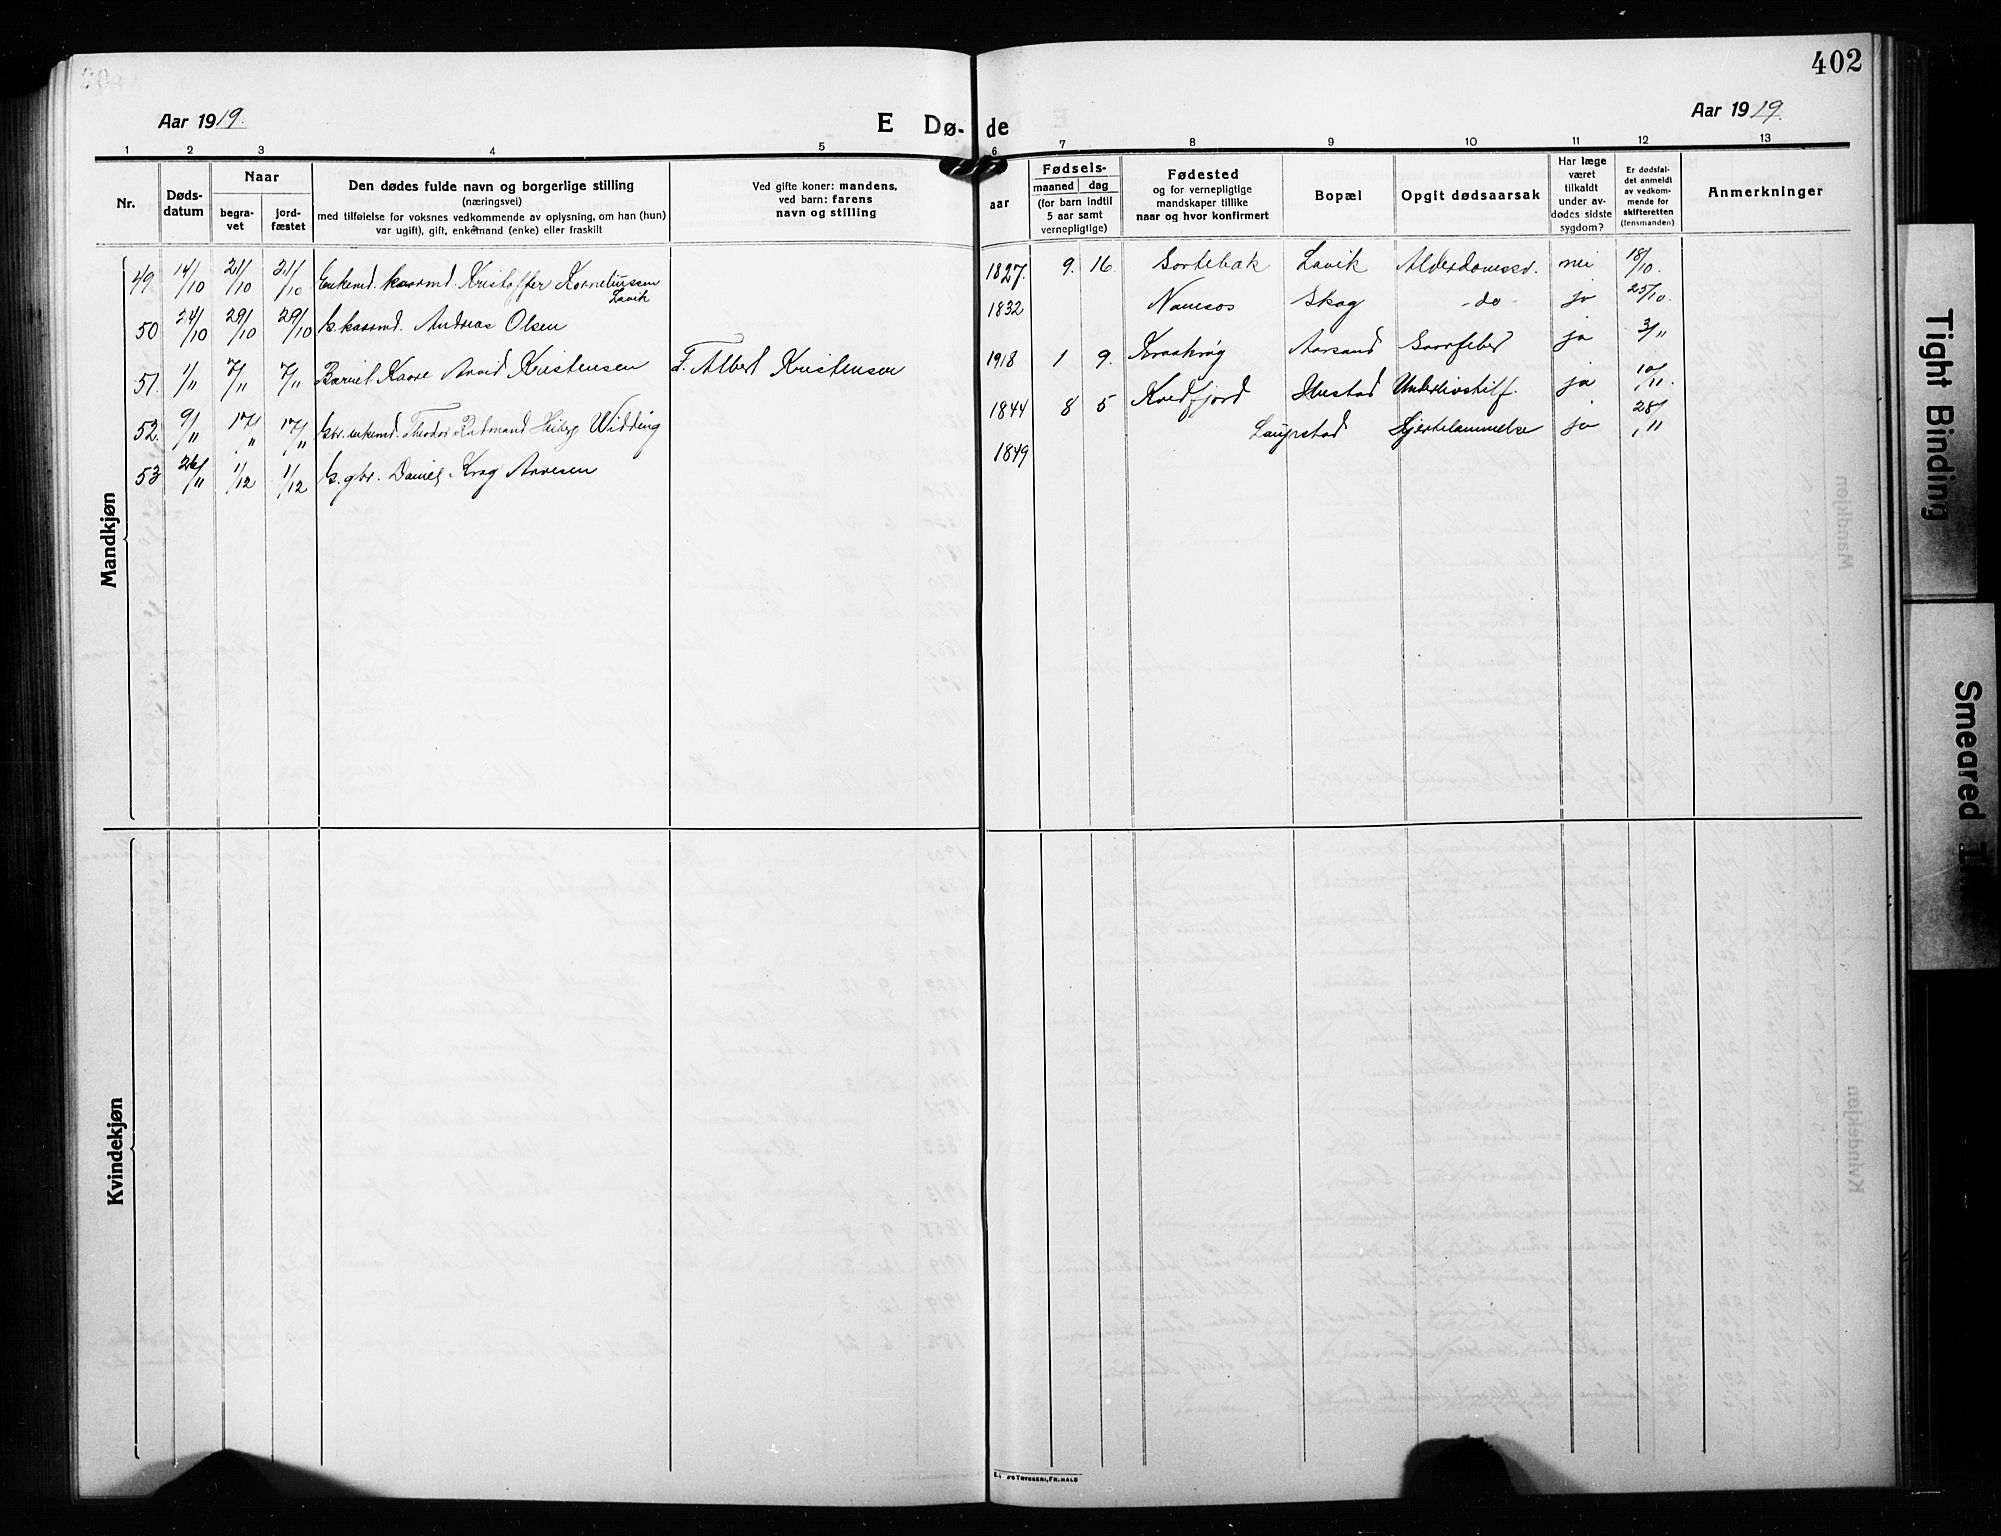 402
Aar 1919.
E Dø-
de
Aar 1919.
1 2 3 4 5 6 7 8 9 10 11 12 13
Nr.
Døds-
datum
Naar
begra-
vet
jord-
fæstet
Den dødes fulde navn og borgerlige stilling
(næringsvei)
med tilføielse for voksnes vedkommende av oplysning, om han (hun)
var ugift), gift, enkemand (enke) eller fraskilt
Ved gifte koner: mandens,
ved barn: farens
navn og stilling
aar
Fødsels-
maaned dag
(for barn indtil
5 aar samt
vernepligtige)
Fødested
og for vernepligtige
mandskaper tillike
naar og hvor konfirmert
Bopæl
Opgit dødsaarsak
Har læge
været
tilkaldt
under av-
dødes sidste
sygdom?
Er dødsfal-
det anmeldt
av vedkom-
mende for
skifteretten
(lensmanden)
Anmerkninger
Mandkjøn
49 14/10 21/10 21/10 Enkemd. kaarmd. Kristoffer Korneliussen Lavik 1827. 9. 16. Sortebæk Lavik Alderdomssv. nei 18/10.
50 24/10 29/10 29/10 G. kaarmd. Andreas Olsen 1832 Namsos Skog - do - ja 25/10.
51. 1/11 7/11 7/11 Barnet Kaare Arvid Kristensen F. Albert Kristensen 1918 1 9. Aarsand ja 3/11
52. 9/11 17/11 17/11 Gbr. enkemd. Theodor Redmand Heiberg Widding 1844 8 5 Kvedfjord Underlivstilf. ja 10/11.
53 26/11 1/12 1/12 G. gbr. Daniel Krog Arnesen 1849 Laupstad Hjertelammelse ja 28/11
Kvindekjøn
TRYKKERI, FR.HALD
Tight Binding
Smeared